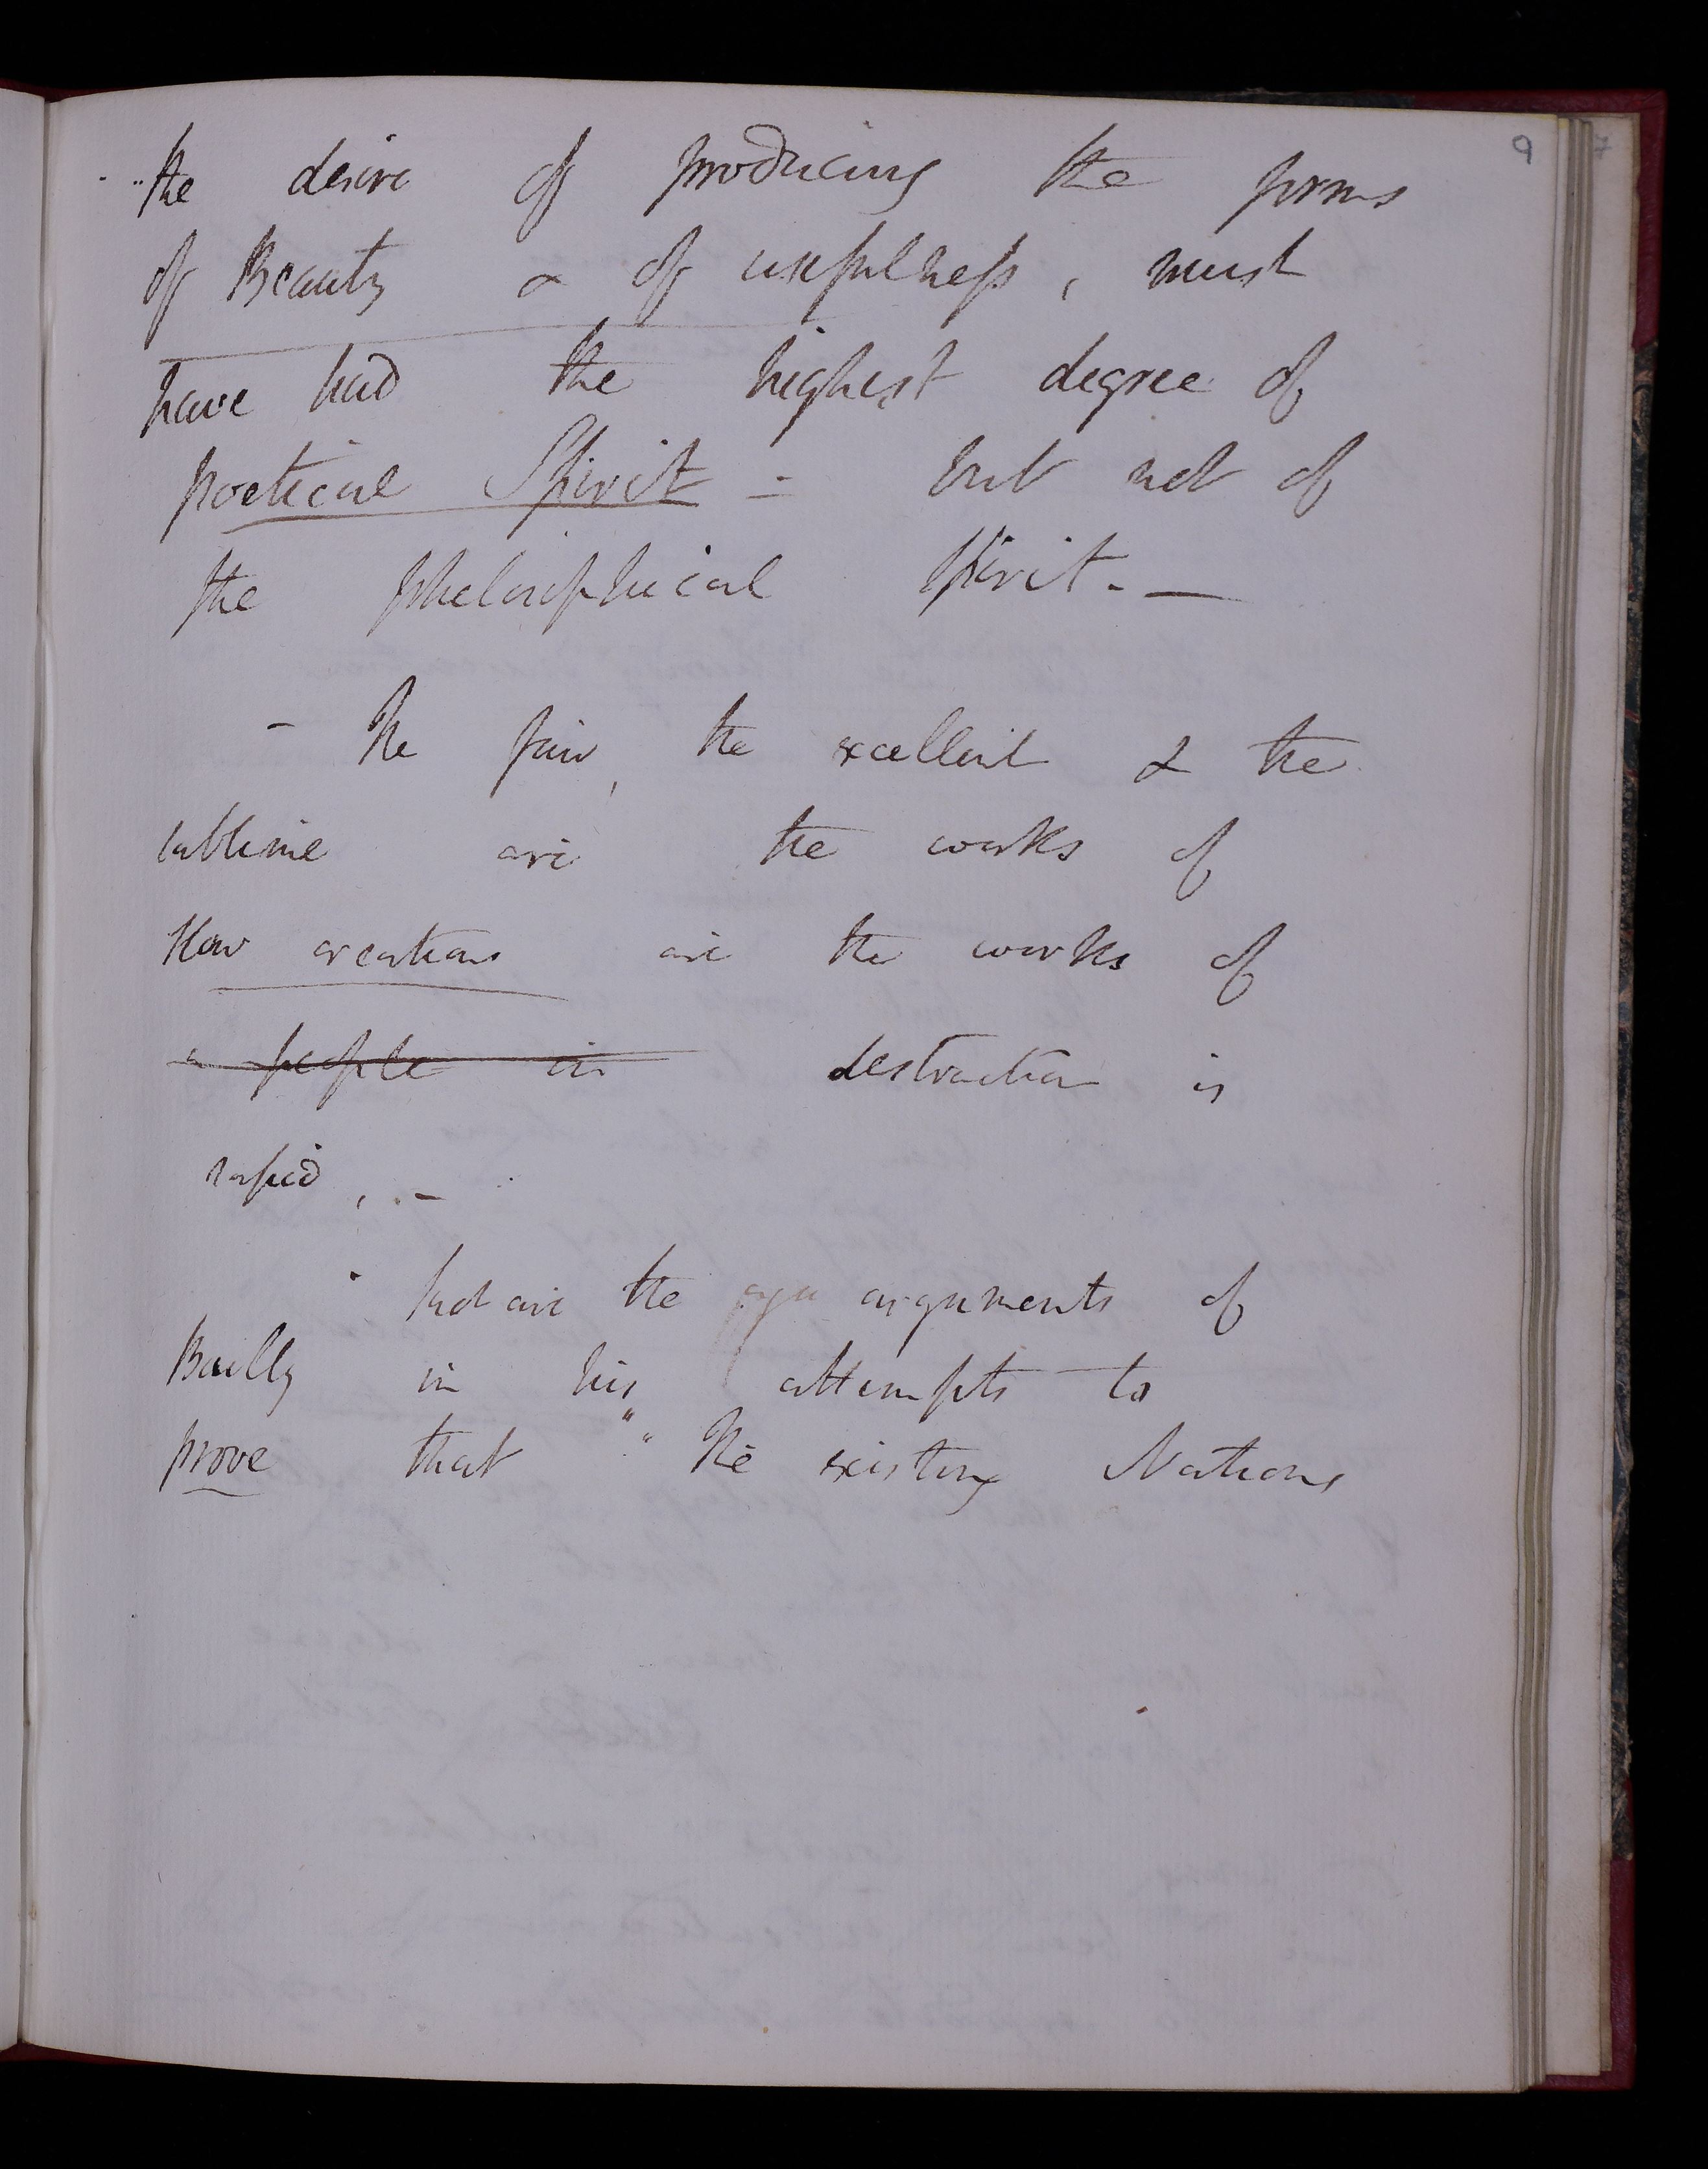 9
the desire of producing the forms
of Beauty & of usefulness, must
have had the highest degree of
poetical Spirit = but not of
the philosophical Spirit. —
- The fair, the excellent & the
sublime are the works of
slow creations are the works of
a people in destruction is
rapid, . -
are the arguments of
Bailly in his attempts to
prove that " The existing Nations